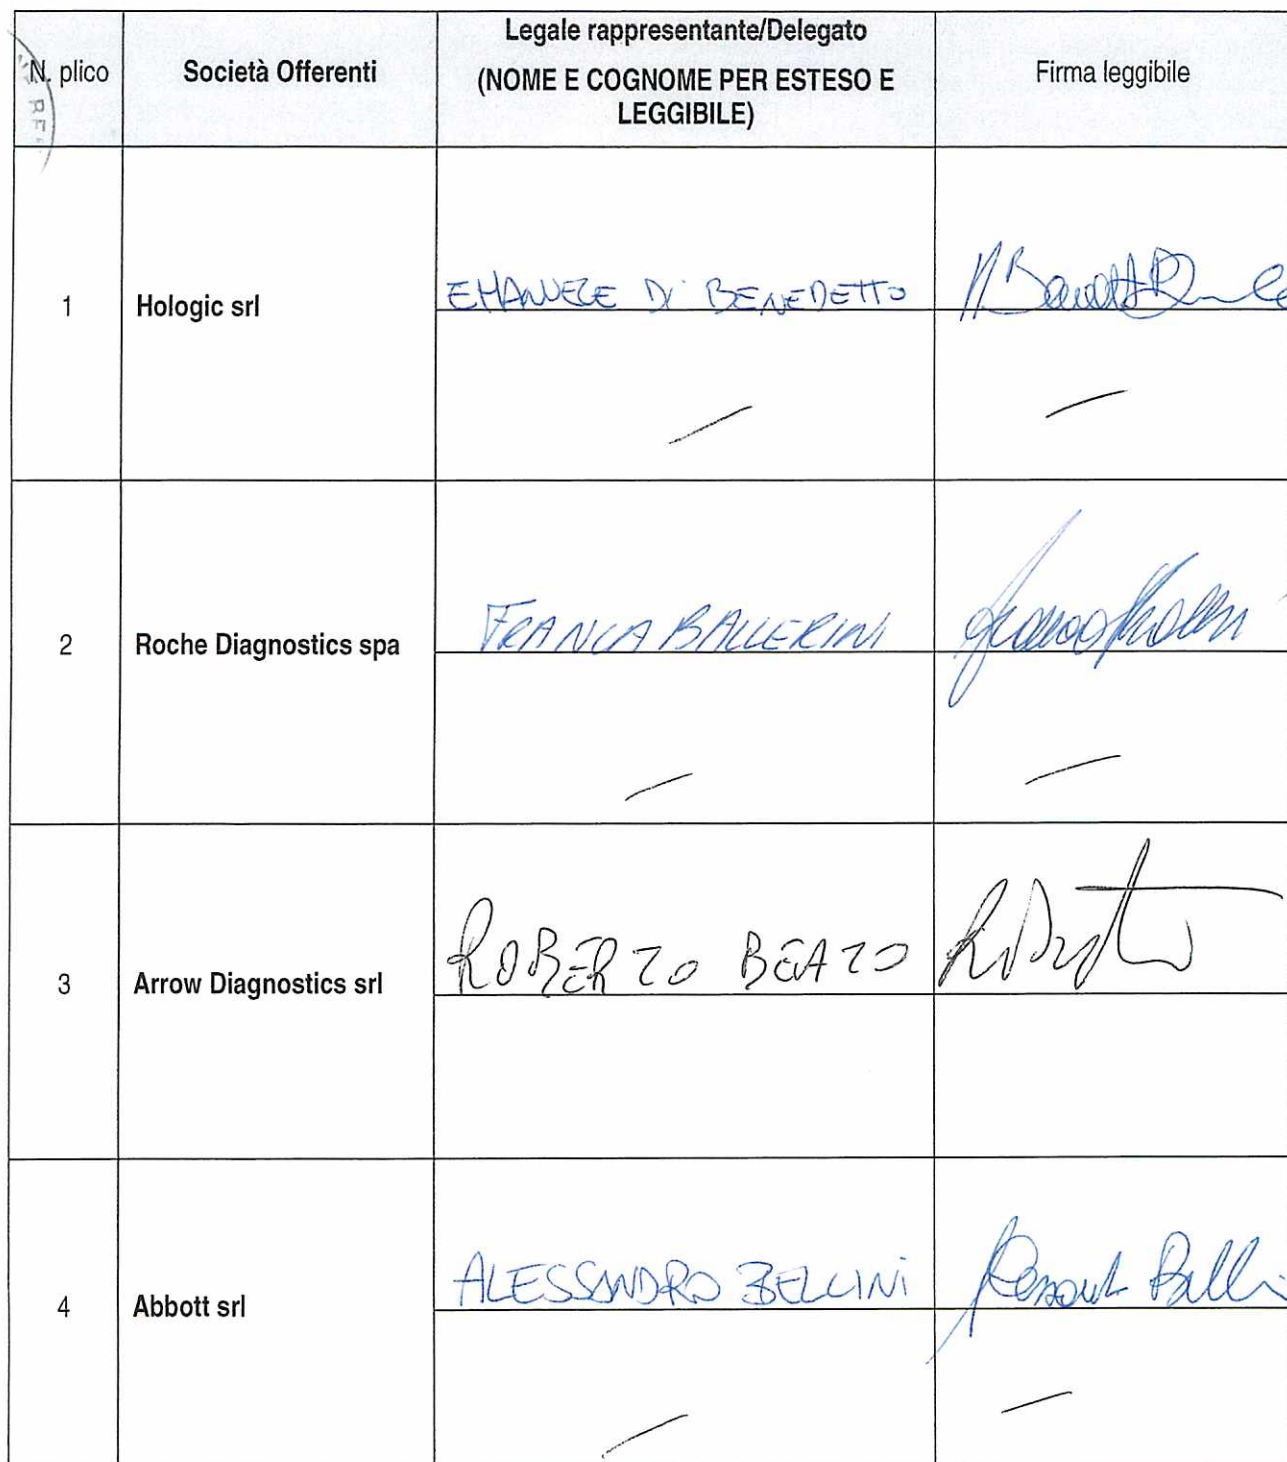 Legale rappresentante/Delegato
N. plico Società Offerenti (NOME E COGNOME PER ESTESO E LEGGIBILE) Firma leggibile
1 Hologic srl EMANUELE DI BENEDETTO
2 Roche Diagnostics spa FRANCA BALLERINI
3 Arrow Diagnostics srl ROBERTO BEATO
4 Abbott srl ALESSANDRO BELLINI